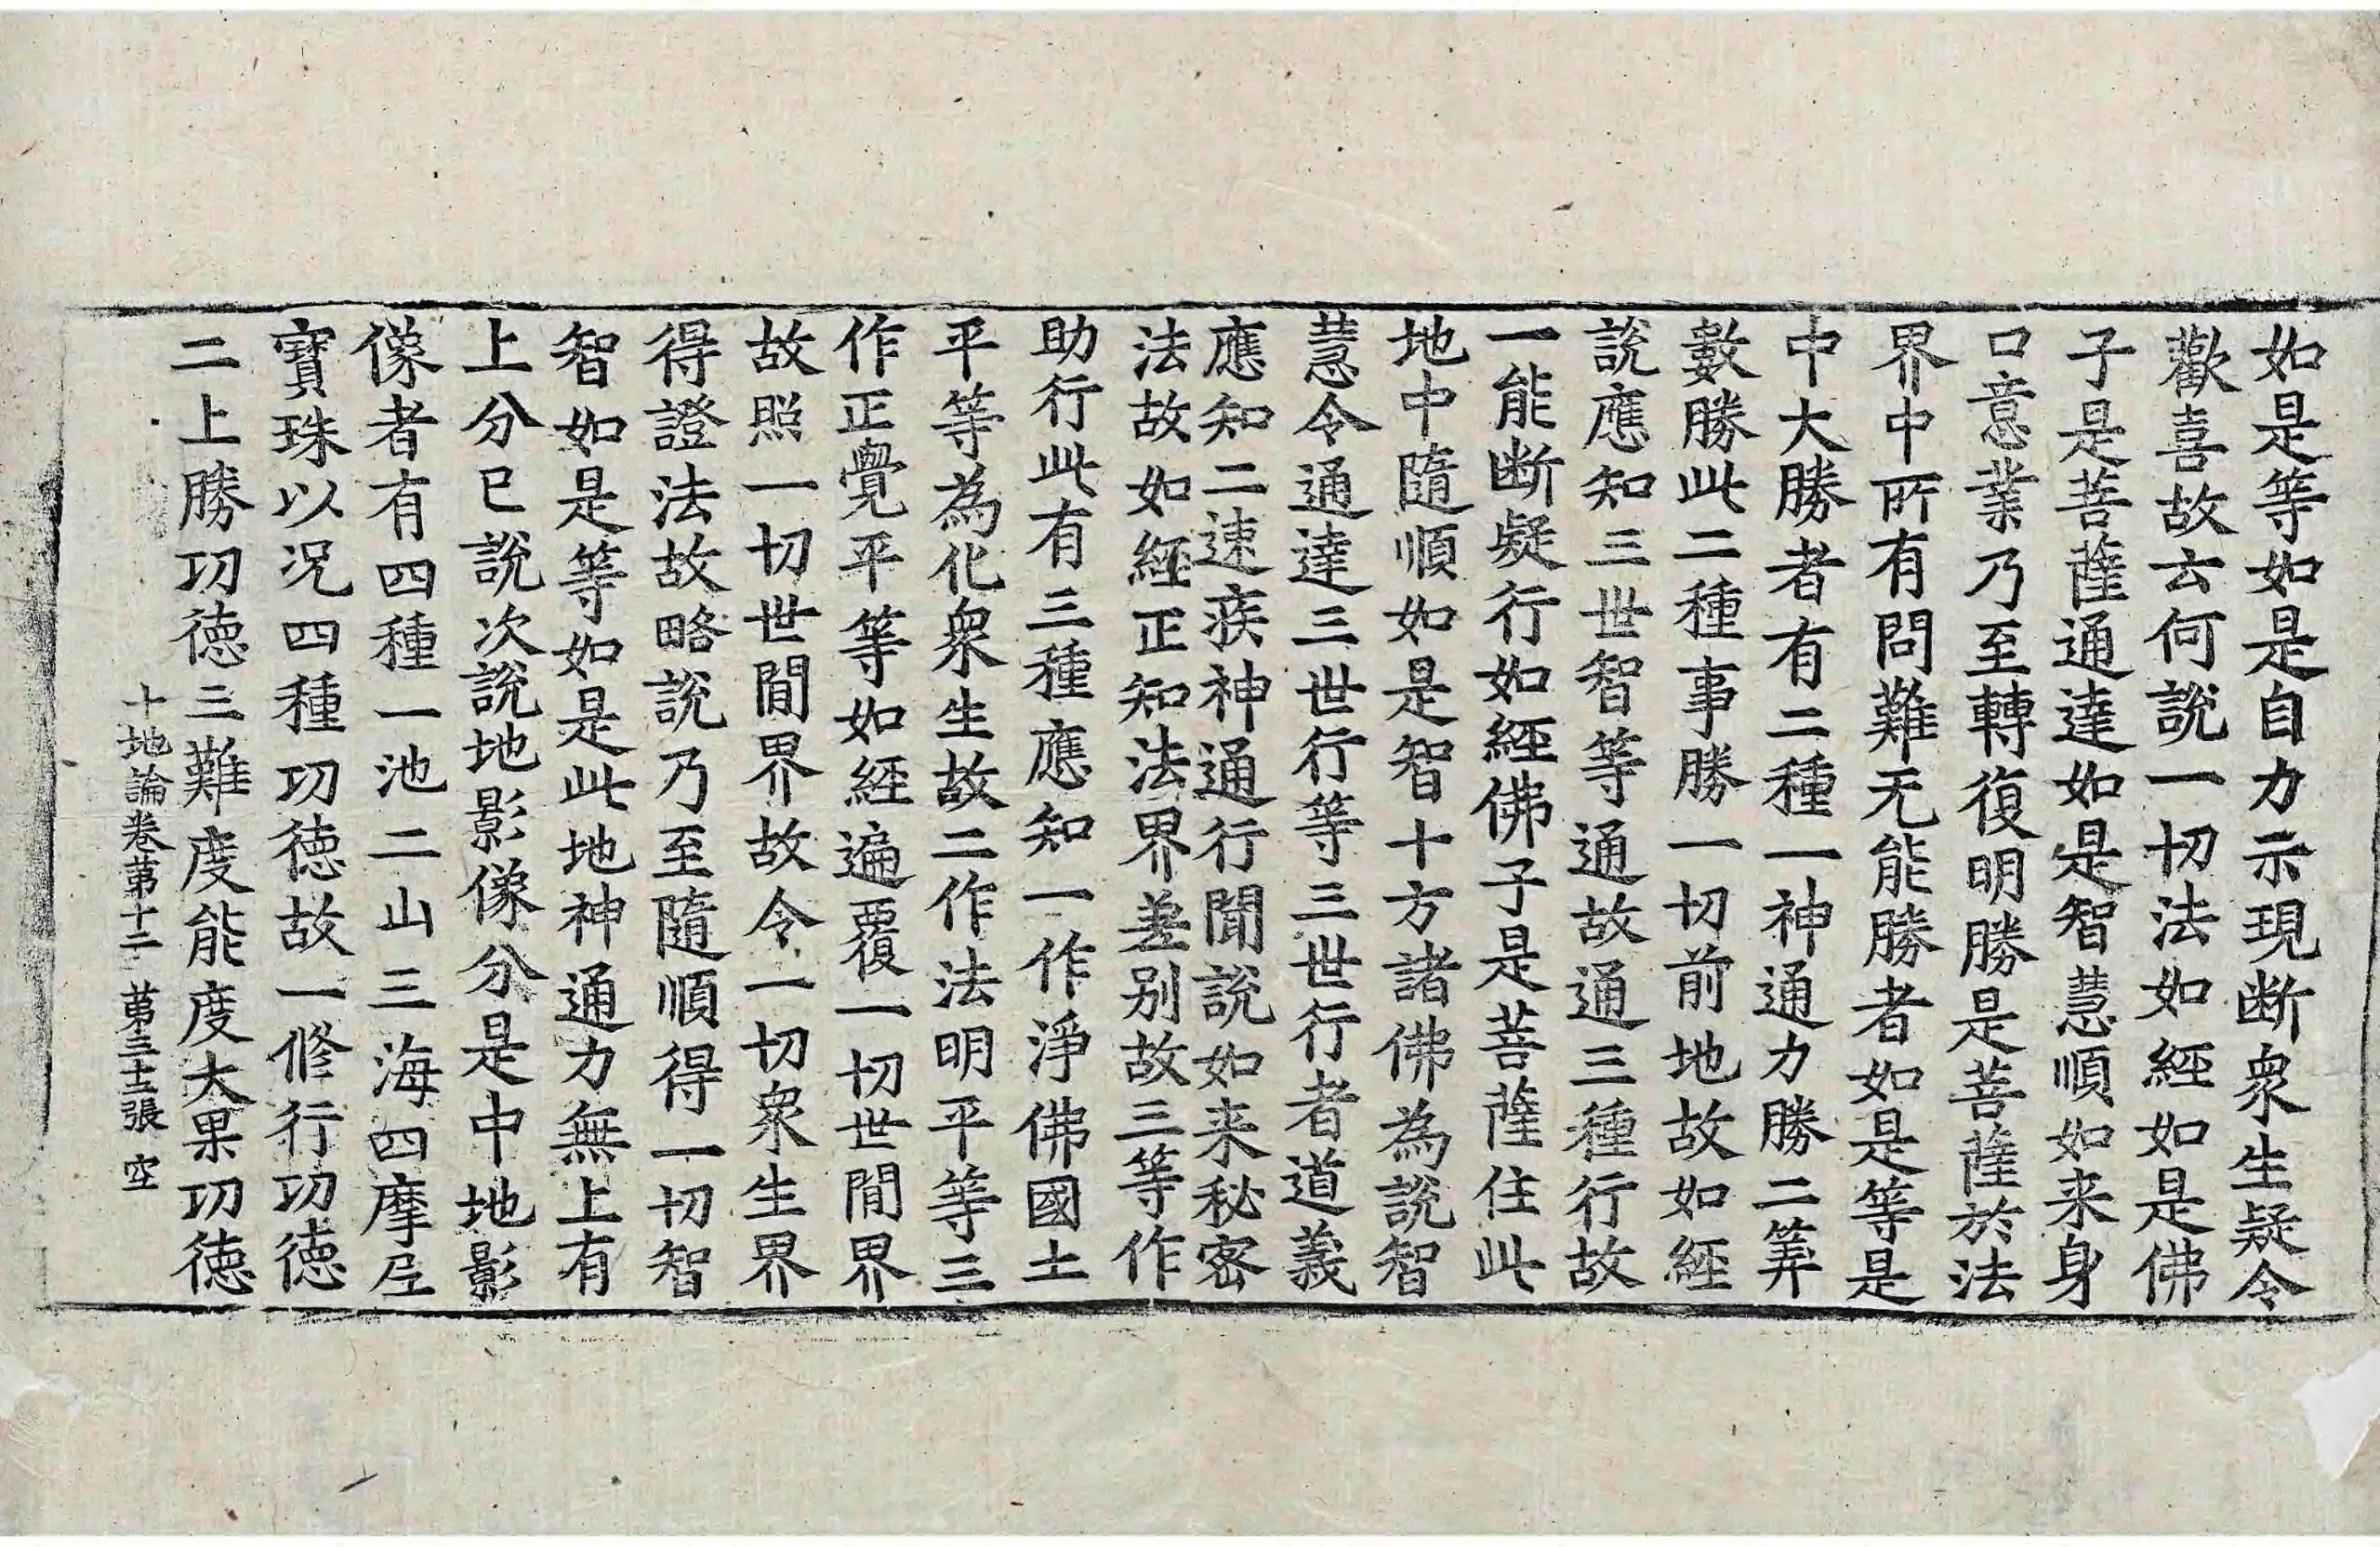 如是等如是自力示現断衆生疑令
歡喜故云何説一切法如經如是佛
子是菩薩通達如是智慧順如来身
口意業乃至轉復明勝是菩薩於法
界中所有問難无能勝者如是等是
中大勝者有二種一神通力勝二筭
數勝此二種事勝一切前地故如經
說應知三世智等通故通三種行故
一能断疑行如經佛子是菩薩住此
地中隨順如是智十方諸佛為說智
慧令通達三世行等三世行者道義
應知二速疾神通行聞說如来秘密
法故如經正知法界差别故三等作
助行此有三種應知一作淨佛國土
平等為化衆生故二作法明平等三
作正覺平等如經遍覆一切世閒界
故照一切世閒界故令一切衆生界
得證法故略說乃至隨順得一切智
智如是等如是此地神通力無上有
上分已說次説地影像分是中地影
像者有四種一池二山三海四摩尼
寶珠以况四種功德故一修行功德
二上勝功德三難度能度大果功德
十地論卷苐十二 苐三十三張 空